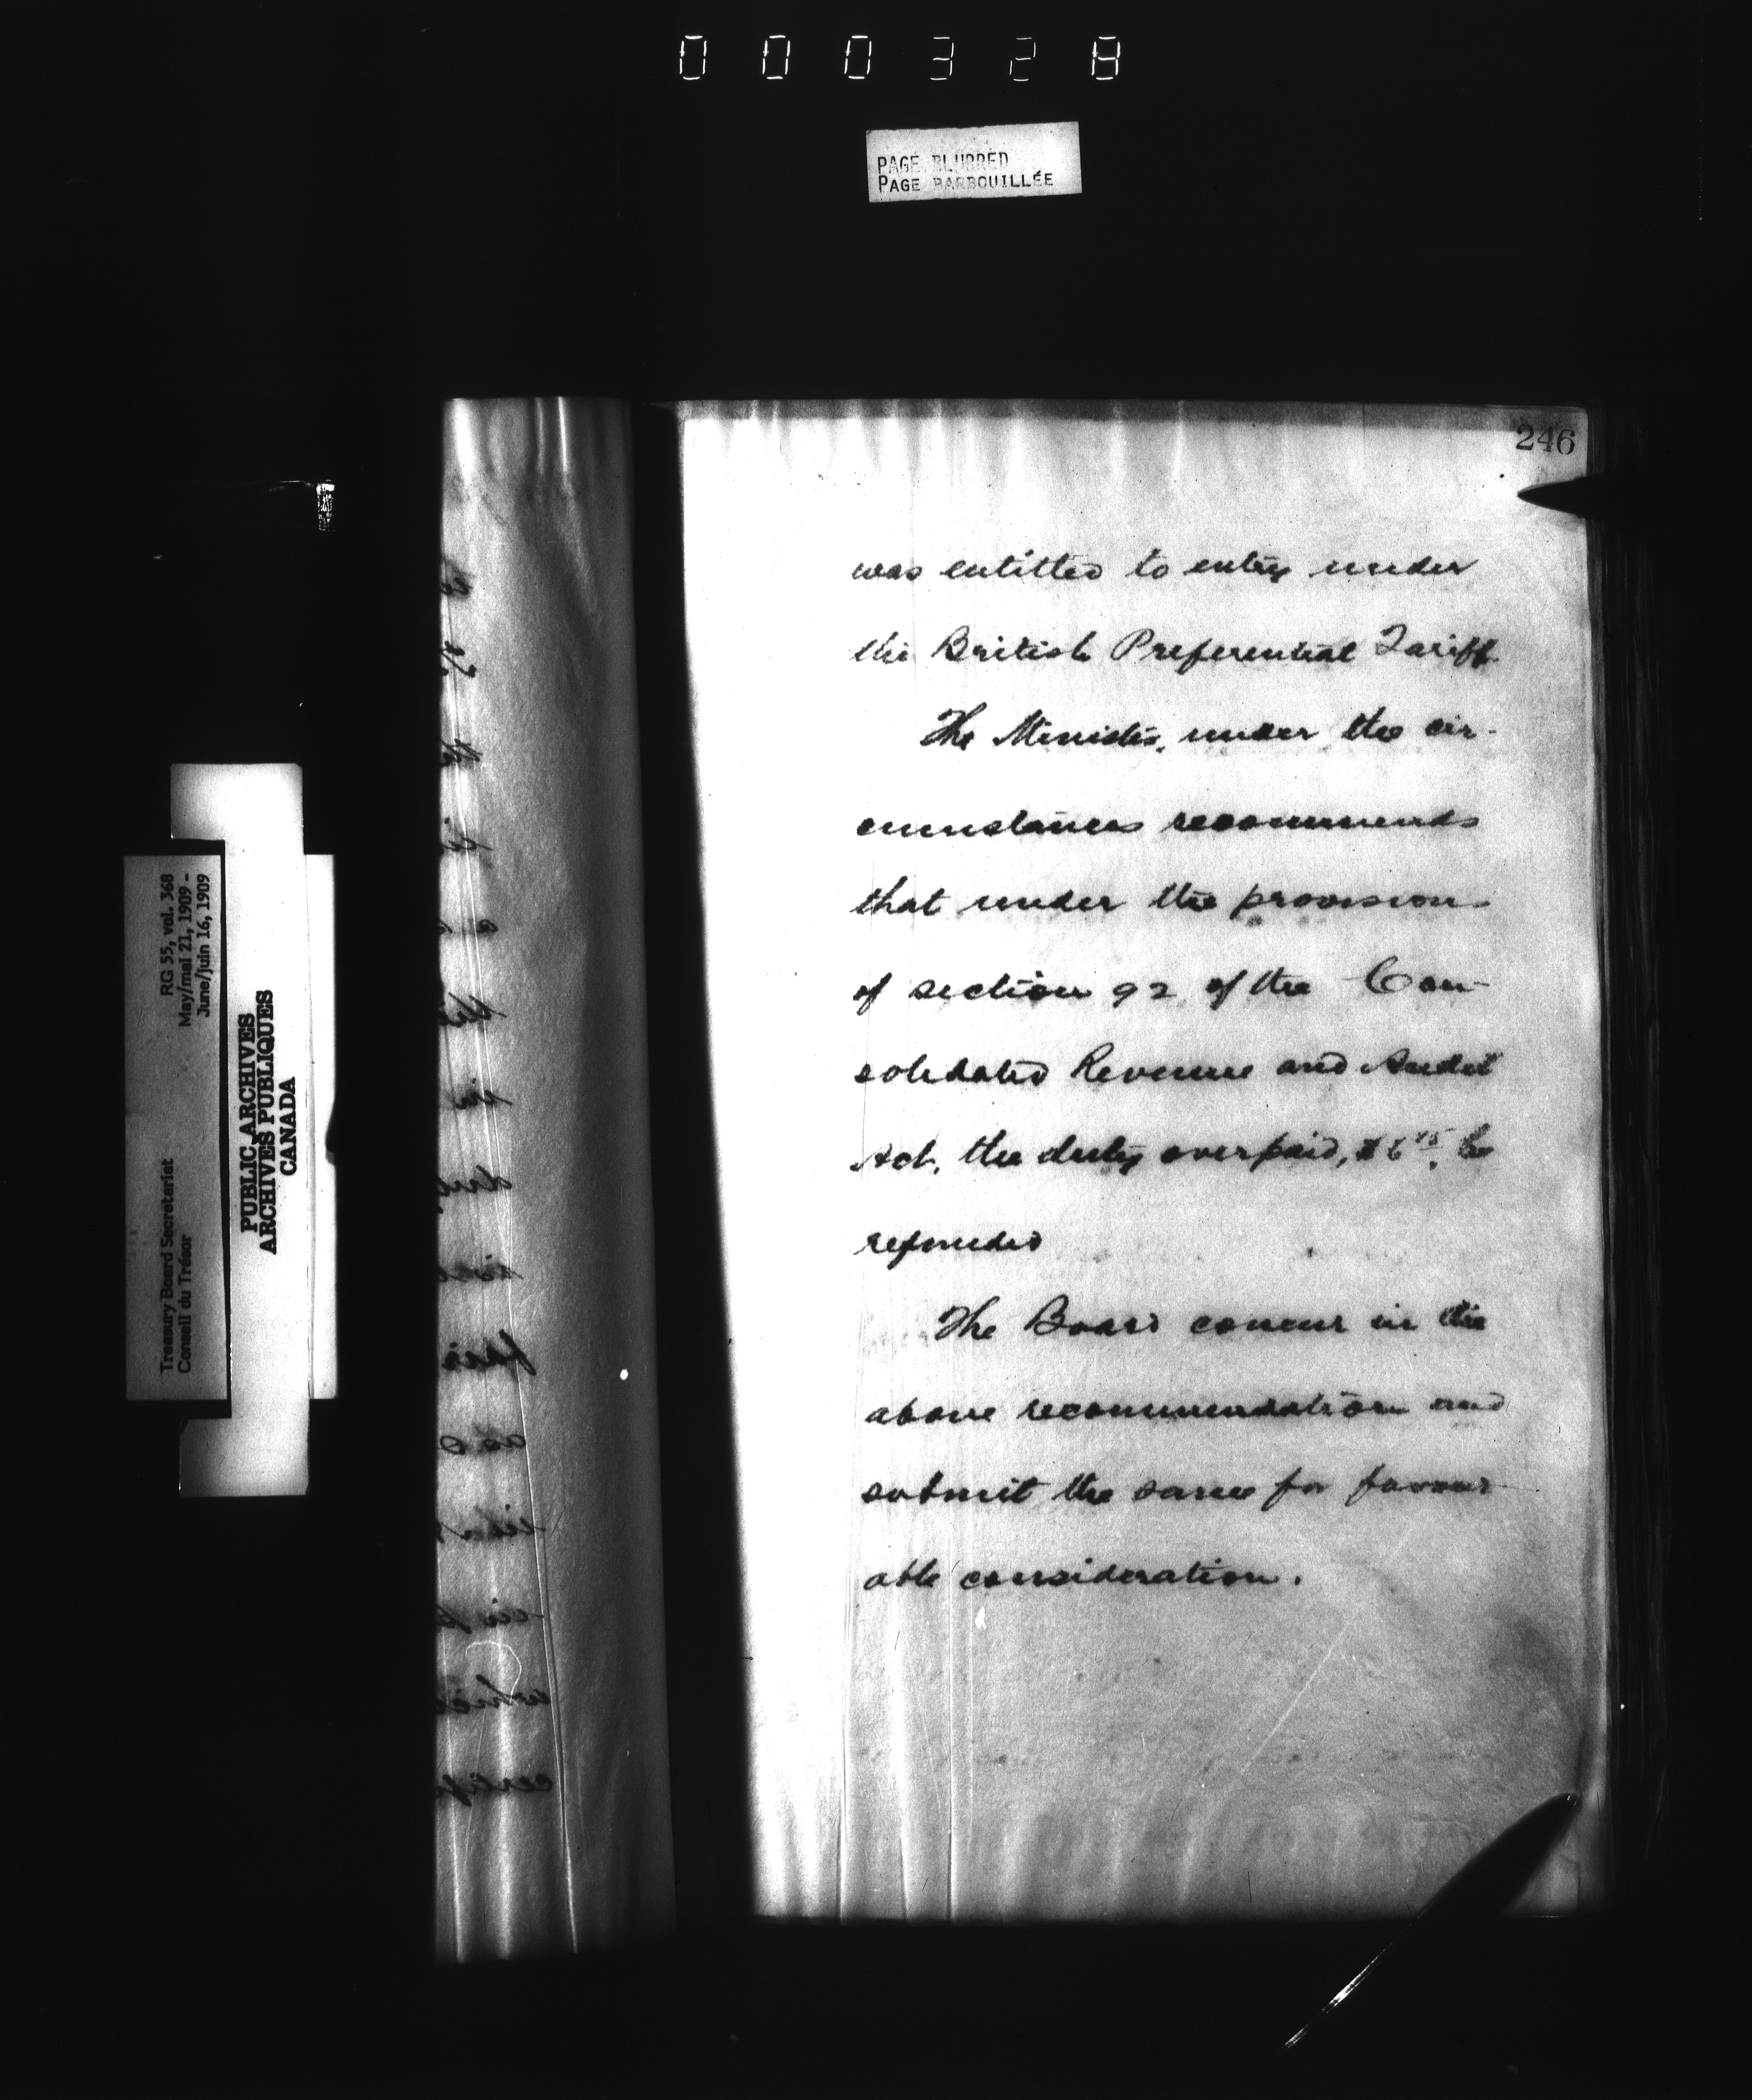 000328
PAGE BLURRED
PAGE BARBOUILLÉE
246
was entitled to entry under
the British Preferential Tariff.
The Minister, under the cir-
cumstances recommends
that under the provisions
of section 92 of the Con-
solidated Revenue and Audit
Act, the duty overpaid, be
refunded
The Board concur in the
above recommendation and
submit the same for favour-
able consideration.
RG 55, vol. 368
May/mai 21, 1909 -
June/juin 16, 1909
Treasury Board Secretariat
Conseil du Trésor
PUBLIC ARCHIVES
ARCHIVES PUBLIQUES
CANADA